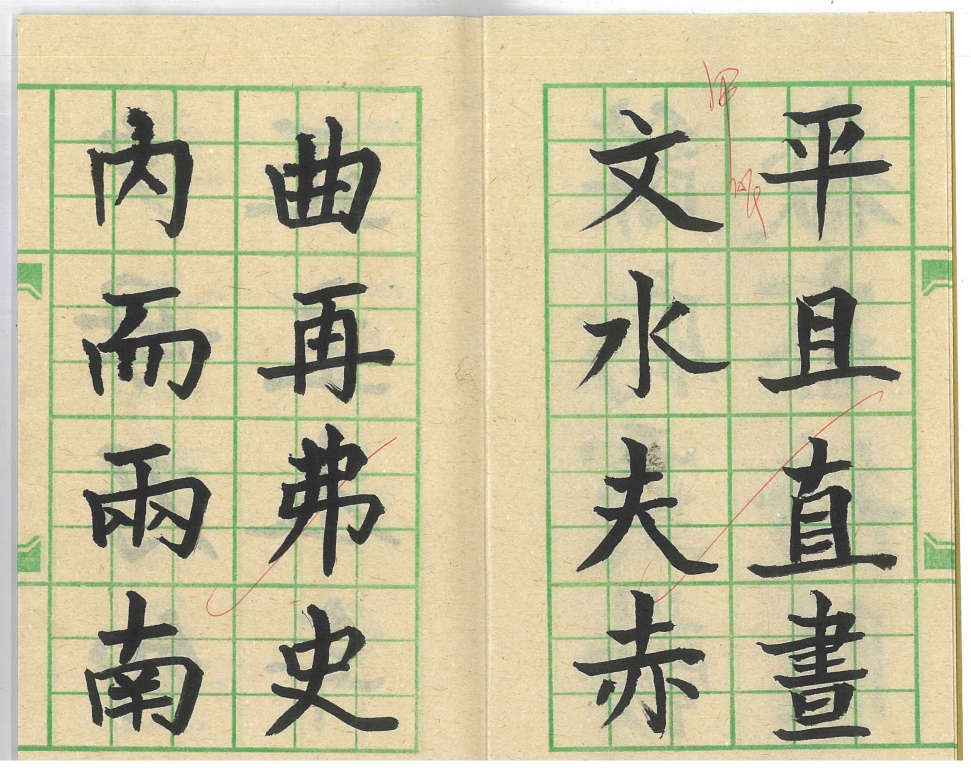 平且直晝
文水夫赤
曲再弗史
內而兩南